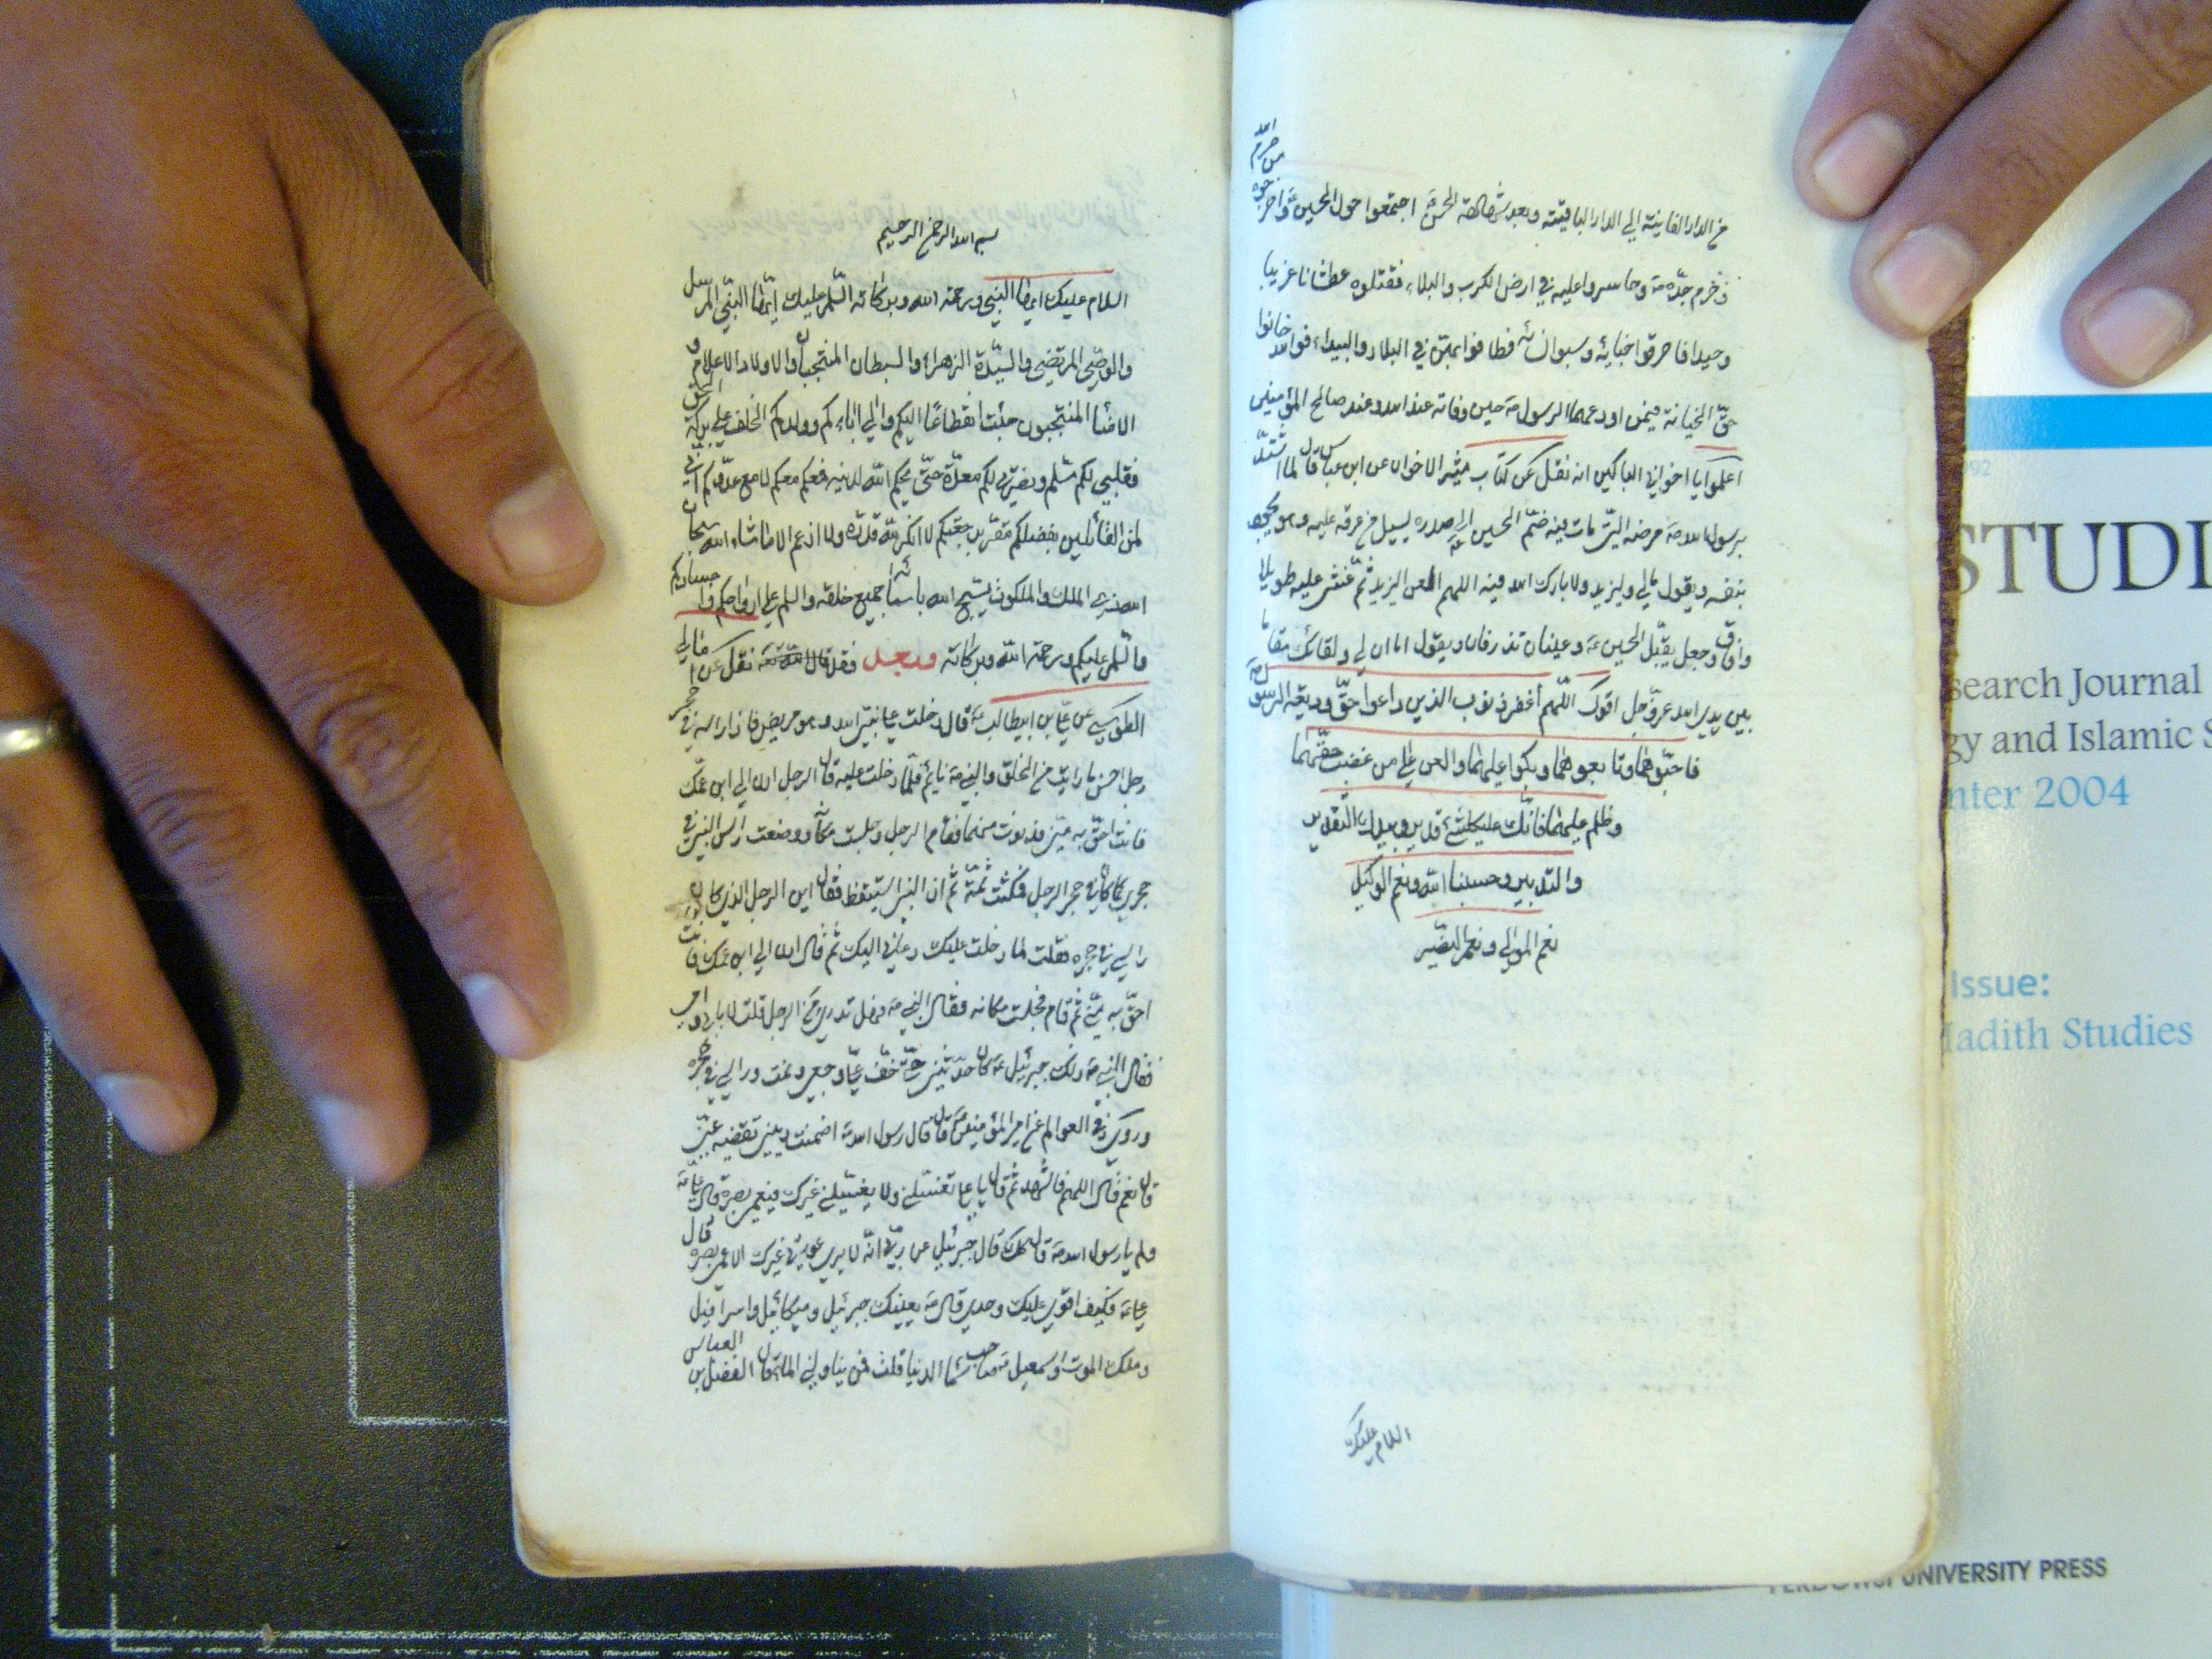 من الدار الفانية الى الدار الباقية وبعد شهادة الحسن اجتمعوا حول الحسين ع واخرجوه من حرم الله
وحرم جده ص وحاسروا عليه في ارض الكرب والبلاء فقتلوه عطشانا غريبا
وحيدا فاحرقوا اخبائه وسبوا نسائه فطافوا بهن في البلاد والبيداء فوالله خانوا
حق الخيانة فيمن اودعهما الرسول ص حين وفاته عند الله وعند صالح المؤمنين
اعلموا يا اخواني الباكين انه نقل عن كتاب مثير الاحزان عن ابن عباس قال لما اشتد
برسول الله ص مرضه التي مات فيه ضم الحسين ع الى صدره يسيل من عرقه عليه وهو يجود
بنفسه ويقول مالي وليزيد ولا بارك الله فيه اللهم العن اليزيد ثم غشي عليه طويلا
وافاق وجعل يقبل الحسين ع وعيناه تذرفان ويقول اما ان لي ولقاتلك مقاما
بين يدي الله عز وجل اقول اللهم اغفر ذنوب الذين راعوا حق وديعة الرسول ص
فاحبوهما وتابعوهما وبكوا عليهما والعن على من غصب حقهما
وظلم عليهما فانك على كلشئ قدير وبيدك التقدير
والتدبير وحسبنا الله ونعم الوكيل
نعم المولى ونعم النصير
السلام عليك
بسم الله الرحمن الرحيم
السلام عليك ايها النبي ورحمة الله وبركاته السلام عليك ايها النبي المرسل
والوصي المرتضى والسيدة الزهراء والسبطان المنتجبان والاولاد الاعلام و
الامناء المنتجبون جئت انقطاعا اليكم والى ابائكم وولدكم الخلف على بركة
فقلبي لكم مسلم ونصرتي لكم معدة حتى يحكم الله لدينه فمعكم معكم لا مع عدوكم اني
لمن القائلين بفضلكم مقر برجعتكم لا انكر لله قدرة ولا ازعم الا ما شاء الله سبحان
الله ذي الملك والملكوت يسبح الله باسمائه جميع خلقه والسلام على ارواحكم واجسادكم
والسلام عليكم ورحمة الله وبركاته وبعد فقد نقل عن امالي
الطوسي عن علي بن ابيطالب ع قال دخلت على نبي الله وهو مريض فاذا راسه في حجر
رجل احسن ما رايت من الخلق والنبي ص نايم فلما دخلت عليه قال الرجل ادن الى ابن عمك
فانت احق به مني فدنوت منهما فقام الرجل وجلست مكانه ووضعت راس النبي في
حجري كما كان في حجر الرجل فمكثت ثمة ثم ان النبي استيقظ فقال اين الرجل الذي كان
راسي في حجره فقلت لما دخلت عليك دعاني اليك ثم قال ادن الى ابن عمك فانت
احق به مني ثم قام فجلست مكانه فقال النبي ص فهل تدري من الرجل قلت لا بابي وامي
فقال النبي ص ذلك جبرئيل ع كان يحدثني حتى خف عني وجعي ونمت وراسي في حجره
وروي في العوالم عن امير المؤمنين ع قال قال رسول الله ص اضمنت ديني تقضيه عني
قال نعم قال اللهم فاشهد ثم قال يا علي تغسلني ولا يغسلني غيرك فيعمى بصره قال علي ع
ولم يا رسول الله ص قال كذلك قال جبرئيل عن ربي انه لا يرى عورتي غيرك الا عمي بصره قال
علي ع فكيف اقوى عليك وحدي قال ص يعينك جبرئيل وميكائيل واسرافيل
وملك الموت واسمعيل صاحب سماء الدنيا قلت فمن يناولني الماء قال الفضل بن العباس
STUDI
search Journal
gy and Islamic S
nter 2004
Issue:
Hadith Studies
UNIVERSITY PRESS